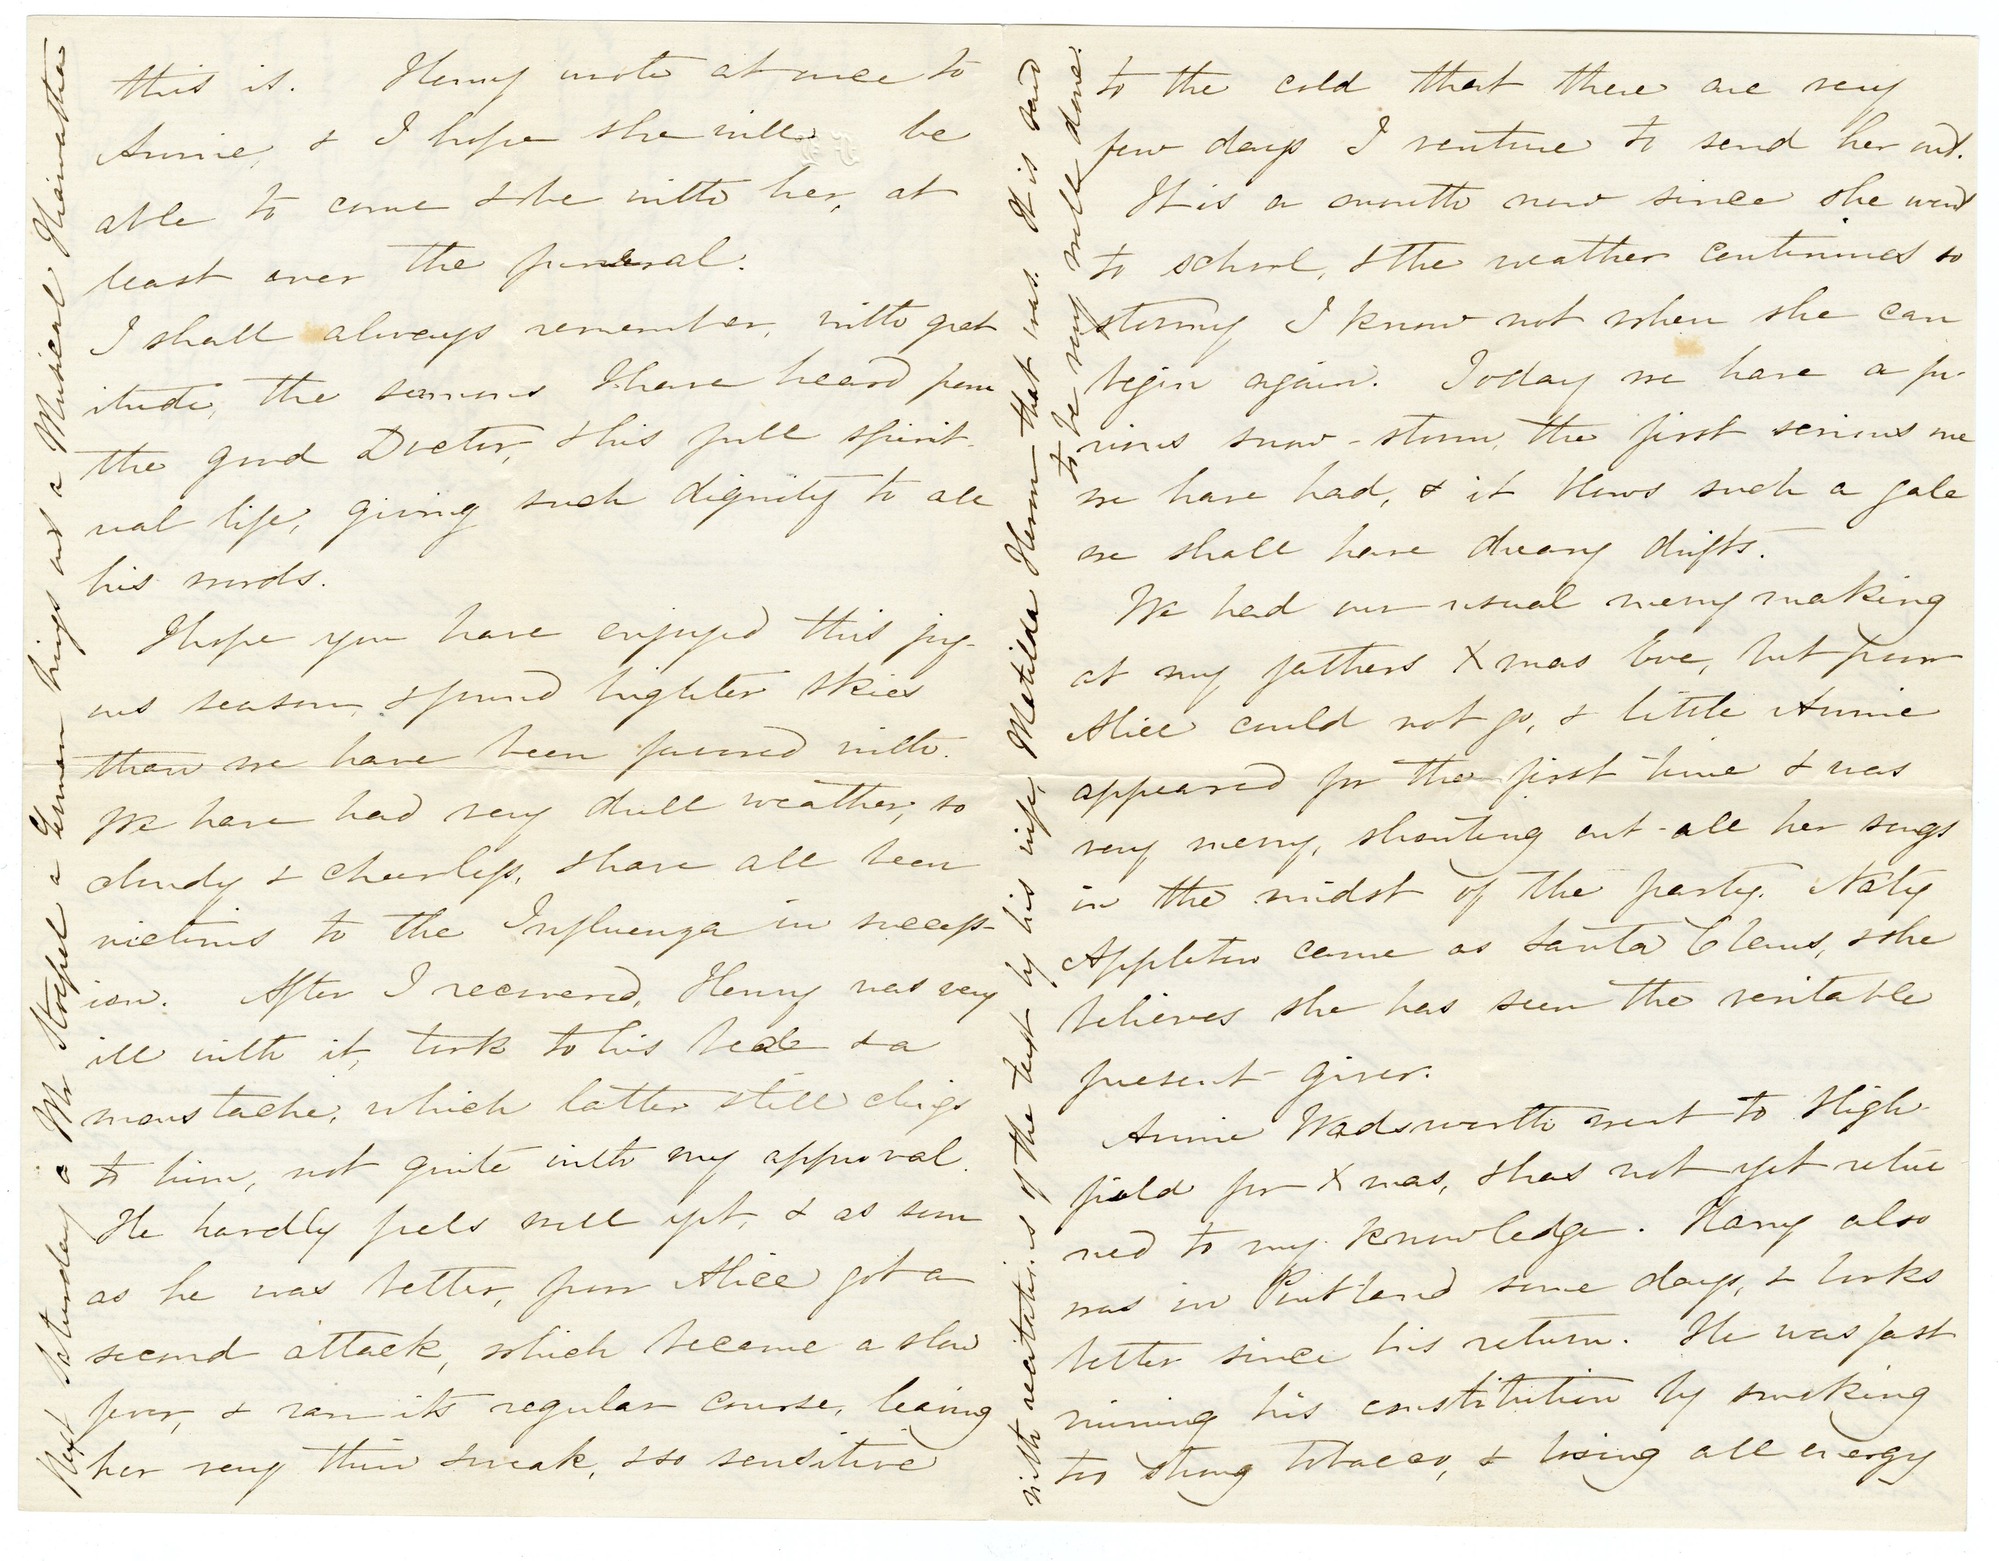 this is. Henry wrote at once to
Annie, & I hope she will be
able to come & be with her, at
least over the funeral.
I shall always remember, with grat
itude, the sermons I have heard from
the good Doctor, & his full spirit-
ual life, giving such dignity to all
his words.
I hope you have enjoyed this joy-
ous season, & found brighter skies
than we have been favored with.
We have had very dull weather, so
cloudy & cheerless, & have all been
victims to the Influenza in success-
ion. After I recovered, Henry was very
ill with it, took to his bed & a
moustache, which latter still clings
to him, not quite with my approval.
He hardly feels well yet, & as soon
as he was better, poor Alice got a
second attack, which became a slow
fever, & ran its regular course, leaving
her very thin & weak, & so sensitive
to the cold that there are very
few days I venture to send her out.
It is a month now since she went
to school, & the weather continues so
stormy I know not when she can
begin again. Today we have a fu-
rious snow-storm, the first serious one
we have had, & it blows such a gale
we shall have dreary drifts.
We had our usual merry making
at my fathers Xmas Eve, but poor
Alice could not go, & little Annie
appeared for the first time & was
very merry, shouting out all her songs
in the midst of the party. Naty
Appleton came as Santa Claus, & she
believes she has seen the veritable
present-giver.
Annie Wadsworth went to High-
field for Xmas, & has not yet retur
ned to my knowledge. Harry also
was in Portland some days, & looks
better since his return. He was fast
ruining his constitution by smoking
too strong tobacco, & losing all energy
Next Saturday a Mr Stoepel a German brings out a Musical Hiawatha
with recitations of the text by his wife, Matilda Heron that was. It is said
to be very well done.